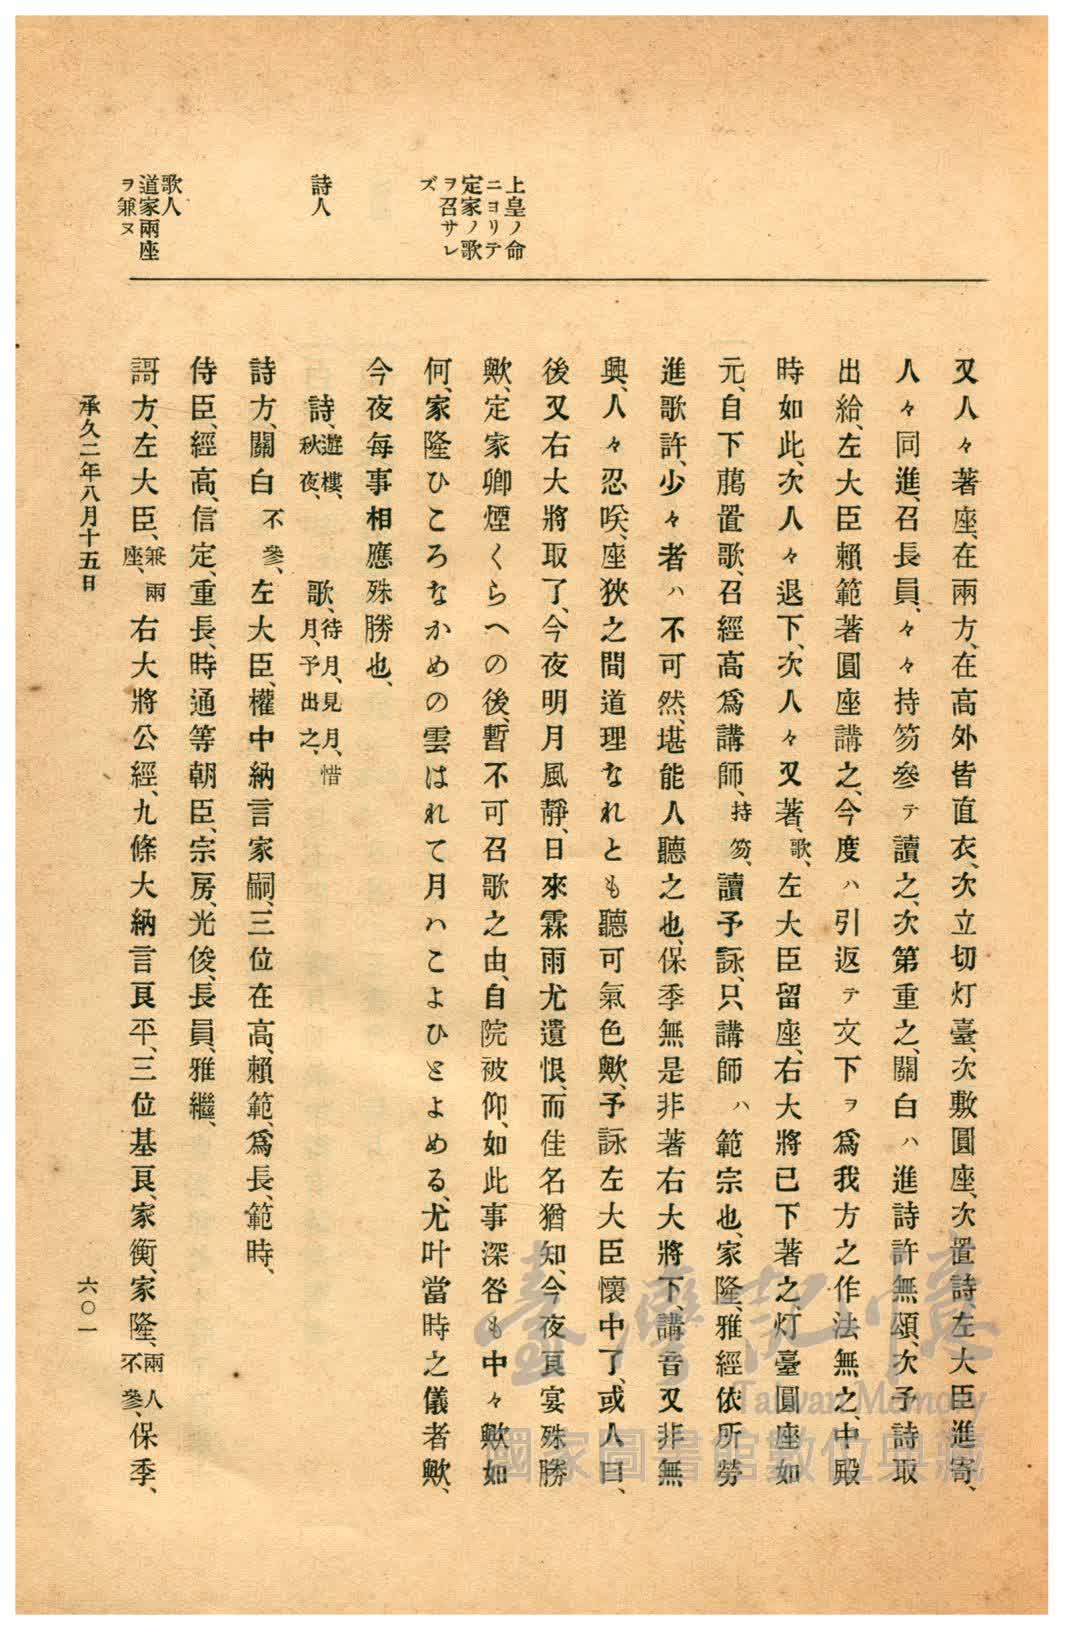 上皇ノ命
ニヨリテ
定家ノ歌
ヲ召サレ
ズ
詩人
歌人
道家兩座
ヲ兼ヌ
又人々著座、在兩方、在高外皆直衣、次立切灯臺、次敷圓座、次置詩、左大臣進寄、
人々同進、召長員、々々持笏參テ讀之、次第重之、關白ハ進詩許無頌、次予詩取
出給、左大臣賴範著圓座講之、今度ハ引返テ文下ヲ爲我方之作法無之、中殿
時如此、次人々退下、次人々又著、歌、左大臣留座、右大將已下著之、灯臺圓座如
元、自下﨟置歌、召經高爲講師、持笏、讀予詠、只講師ハ範宗也、家隆、雅經依所勞
進歌許、少々者ハ不可然、堪能人聽之也、保季無是非著右大將下、講音又非無
興、人々忍咲、座狹之間道理なれとも聽可氣色歟、予詠左大臣懷中了、或人曰、
後又右大將取了、今夜明月風靜、日來霖雨尤遺恨、而佳名猶知、今夜良宴殊勝
歟、定家卿煙くらへの後、暫不可召歌之由、自院被仰、如此事深咎も中々歟如
何、家隆ひころなかめの雲はれて月ハこよひとよめる、尤叶當時之儀者歟、
今夜每事相應殊勝也、
詩、遊樓、秋夜、 歌、待月、見月、惜月、予出之、
詩方、關白不參、左大臣、權中納言家嗣、三位在高、賴範、爲長、範時、
侍臣、經高、信定、重長、時通等朝臣、宗房、光俊、長員、雅繼、
謌方、左大臣、兼兩座、右大將公經、九條大納言良平、三位基良、家衡、家隆、兩人不參、保季、
承久二年八月十五日
六〇一
臺灣記憶
Taiwan Memory
國家圖書館數位典藏